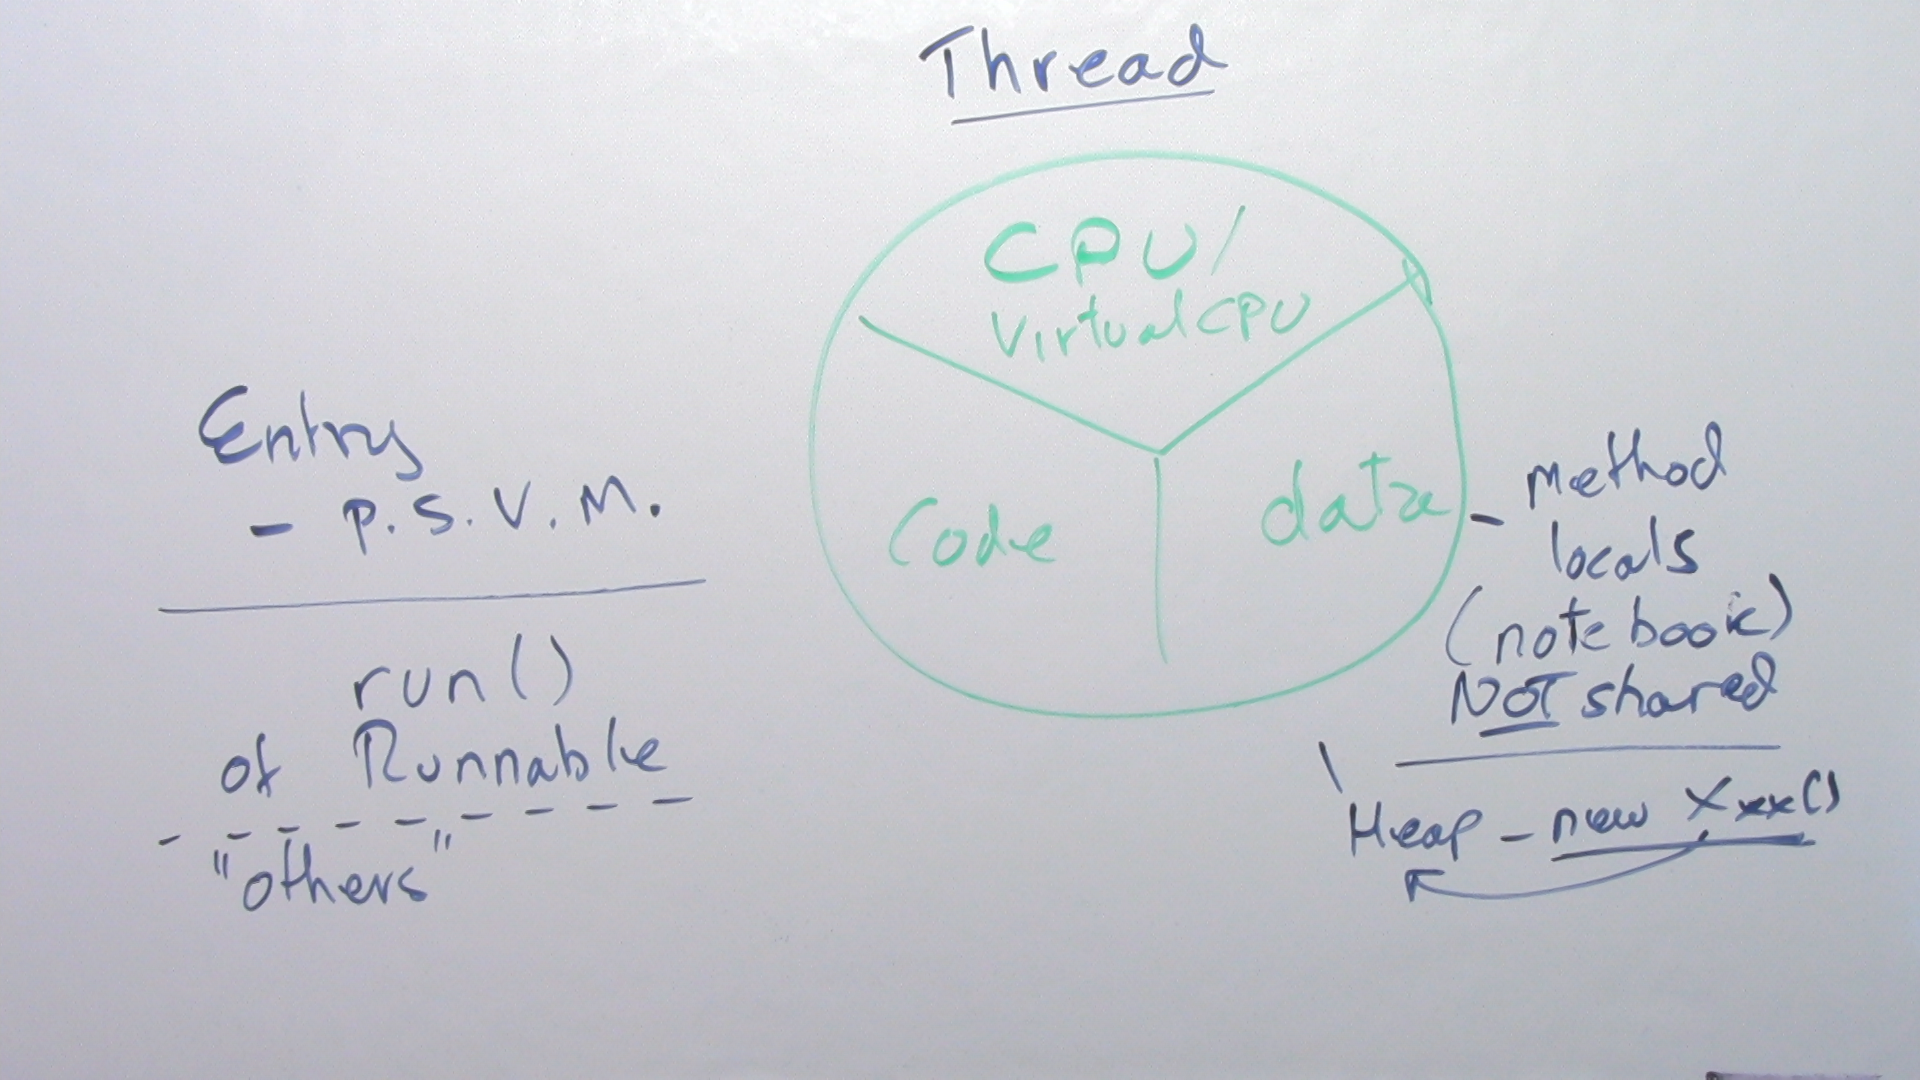 Thread
CPU/
Virtual CPU
Code
data
Entry
- P.S.V.M.
run()
of Runnable
"others"
- method
locals
(notebook)
NOT shared
Heap - new Xxx()